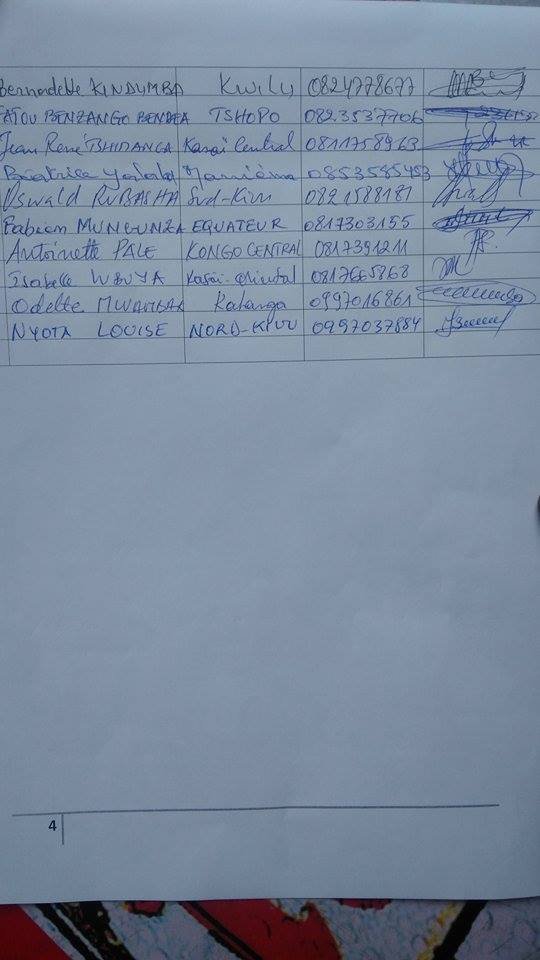 Bernadette KINDUMBA Kwilu 0824778677
FATOU BENZANGO BENDEA TSHOPO 0823537706
Jean René TSHIDANGA Kasai Central 0811758963
Beatrice Maniema 0853585453
Oswald RUBASHA Sud-Kivu 0821588181
Fabien MUNGUNZA EQUATEUR 0817303155
Antoinette PALE KONGO CENTRAL 0817391211
Isabelle Kasai-Oriental 0817665868
Odette Katanga 0997016861
NYOTA LOUISE NORD-KIVU 0997037884
4